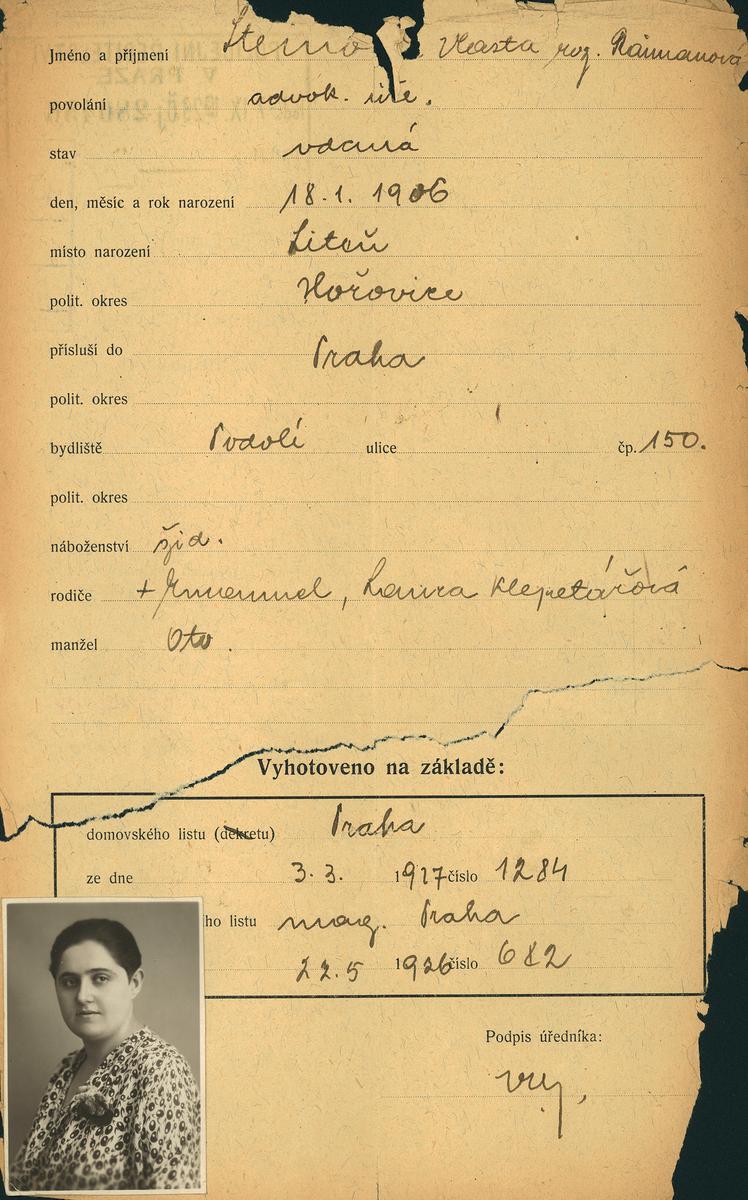 Jméno a příjmení Vlasta roz. Raimanová
povolání advok. úře.
stav vdaná
den, měsíc a rok narození 18.1. 1906
místo narození Liteň
polit. okres Hořovice
přísluší do Praha
polit. okres
bydliště Podolí ulice čp. 150.
polit. okres
náboženství žid.
rodiče + Emanuel, Laura Klepetářová
manžel Oto.
Vyhotoveno na základě:
domovského listu (dekretu) Praha
ze dne 3.3. 1927 číslo 1284
ho listu mag. Praha
22.5 1926 číslo 682
Podpis úředníka: